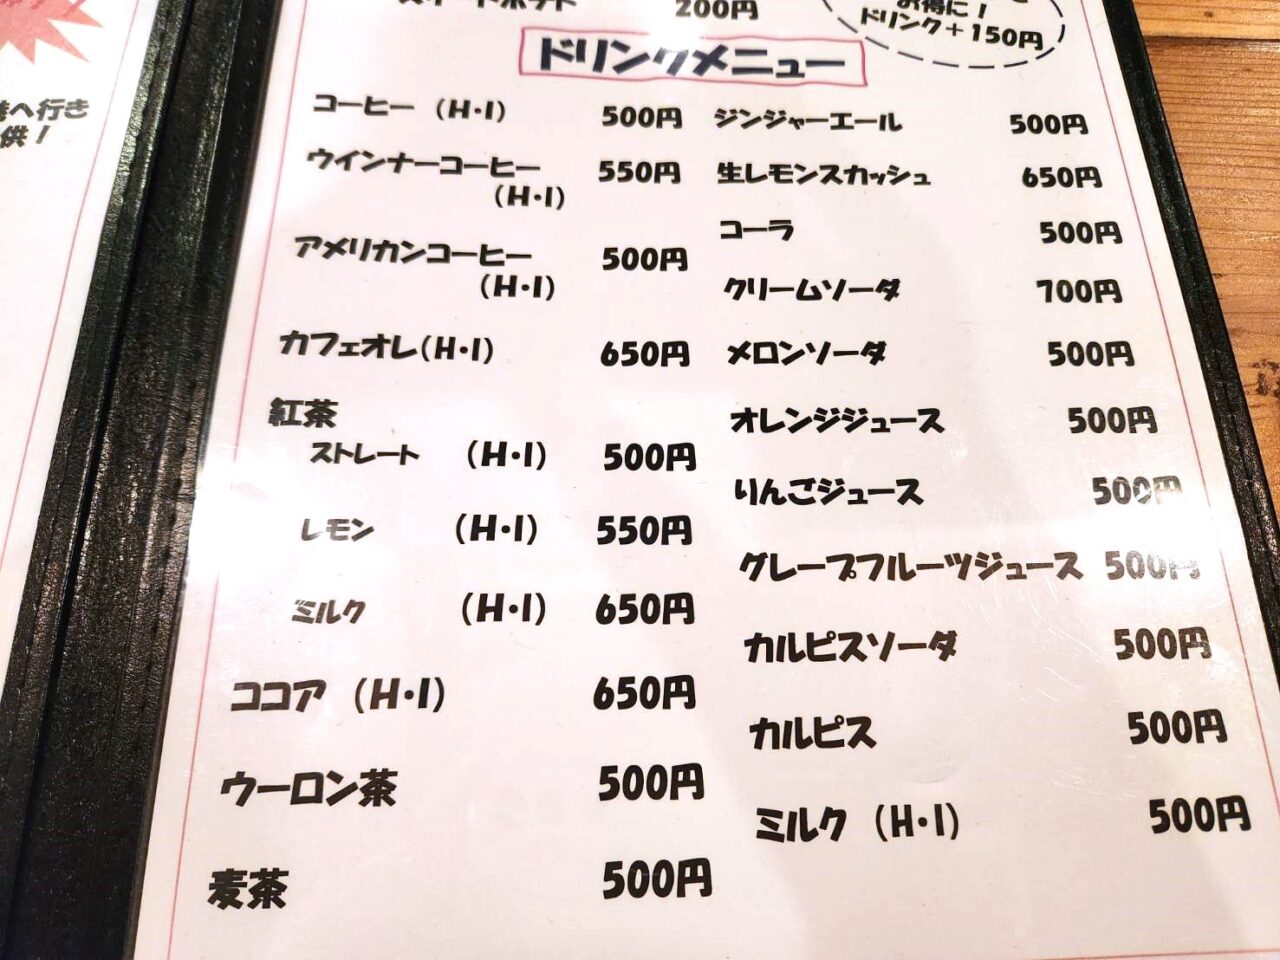 200円
お得に！
ドリンク＋150円
へ行き
供！
ドリンクメニュー
コーヒー（H・I） 500円
ウインナーコーヒー 550円
（H・I）
アメリカンコーヒー 500円
（H・I）
カフェオレ（H・I） 650円
紅茶
ストレート （H・I） 500円
レモン （H・I） 550円
ミルク （H・I） 650円
ココア（H・I） 650円
ウーロン茶 500円
麦茶 500円
ジンジャーエール 500円
生レモンスカッシュ 650円
コーラ 500円
クリームソーダ 700円
メロンソーダ 500円
オレンジジュース 500円
りんごジュース 500円
グレープフルーツジュース 500円
カルピスソーダ 500円
カルピス 500円
ミルク（H・I） 500円